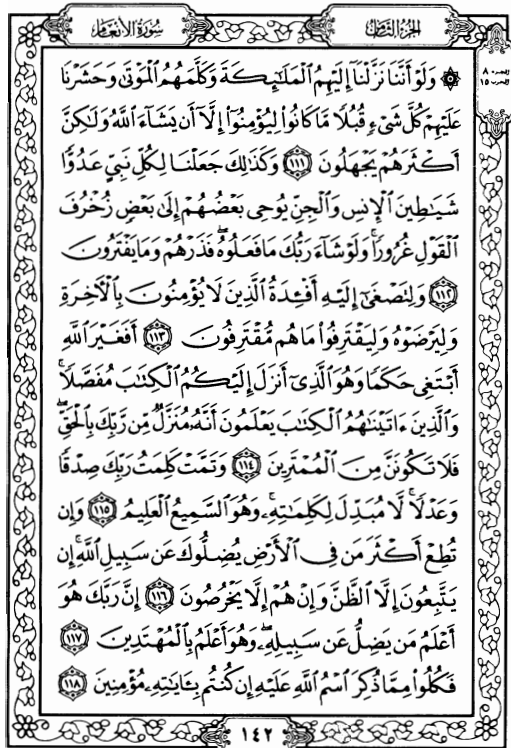 سُورَةُ الأَنْعَام الجُزْءُ الثَّامِنُ
۞ وَلَوْ أَنَّنَا نَزَّلْنَا إِلَيْهِمُ الْمَلَٰٓئِكَةَ وَكَلَّمَهُمُ الْمَوْتَىٰ وَحَشَرْنَا
عَلَيْهِمْ كُلَّ شَىْءٍ قُبُلًا مَّا كَانُوا۟ لِيُؤْمِنُوٓا۟ إِلَّآ أَن يَشَآءَ اللَّهُ وَلَٰكِنَّ
أَكْثَرَهُمْ يَجْهَلُونَ ١١١ وَكَذَٰلِكَ جَعَلْنَا لِكُلِّ نَبِىٍّ عَدُوًّا
شَيَٰطِينَ الْإِنسِ وَالْجِنِّ يُوحِى بَعْضُهُمْ إِلَىٰ بَعْضٍ زُخْرُفَ
الْقَوْلِ غُرُورًا ۚ وَلَوْ شَآءَ رَبُّكَ مَا فَعَلُوهُ ۖ فَذَرْهُمْ وَمَا يَفْتَرُونَ
١١٢ وَلِتَصْغَىٰٓ إِلَيْهِ أَفْـِٔدَةُ الَّذِينَ لَا يُؤْمِنُونَ بِالْـَٔاخِرَةِ
وَلِيَرْضَوْهُ وَلِيَقْتَرِفُوا۟ مَا هُم مُّقْتَرِفُونَ ١١٣ أَفَغَيْرَ اللَّهِ
أَبْتَغِى حَكَمًا وَهُوَ الَّذِىٓ أَنزَلَ إِلَيْكُمُ الْكِتَٰبَ مُفَصَّلًا ۚ
وَالَّذِينَ ءَاتَيْنَٰهُمُ الْكِتَٰبَ يَعْلَمُونَ أَنَّهُۥ مُنَزَّلٌ مِّن رَّبِّكَ بِالْحَقِّ ۖ
فَلَا تَكُونَنَّ مِنَ الْمُمْتَرِينَ ١١٤ وَتَمَّتْ كَلِمَتُ رَبِّكَ صِدْقًا
وَعَدْلًا ۚ لَّا مُبَدِّلَ لِكَلِمَٰتِهِۦ ۚ وَهُوَ السَّمِيعُ الْعَلِيمُ ١١٥ وَإِن
تُطِعْ أَكْثَرَ مَن فِى الْأَرْضِ يُضِلُّوكَ عَن سَبِيلِ اللَّهِ ۚ إِن
يَتَّبِعُونَ إِلَّا الظَّنَّ وَإِنْ هُمْ إِلَّا يَخْرُصُونَ ١١٦ إِنَّ رَبَّكَ هُوَ
أَعْلَمُ مَن يَضِلُّ عَن سَبِيلِهِۦ ۖ وَهُوَ أَعْلَمُ بِالْمُهْتَدِينَ ١١٧
فَكُلُوا۟ مِمَّا ذُكِرَ اسْمُ اللَّهِ عَلَيْهِ إِن كُنتُم بِـَٔايَٰتِهِۦ مُؤْمِنِينَ ١١٨
١٤٢
الجزء ٨
الحزب ١٥